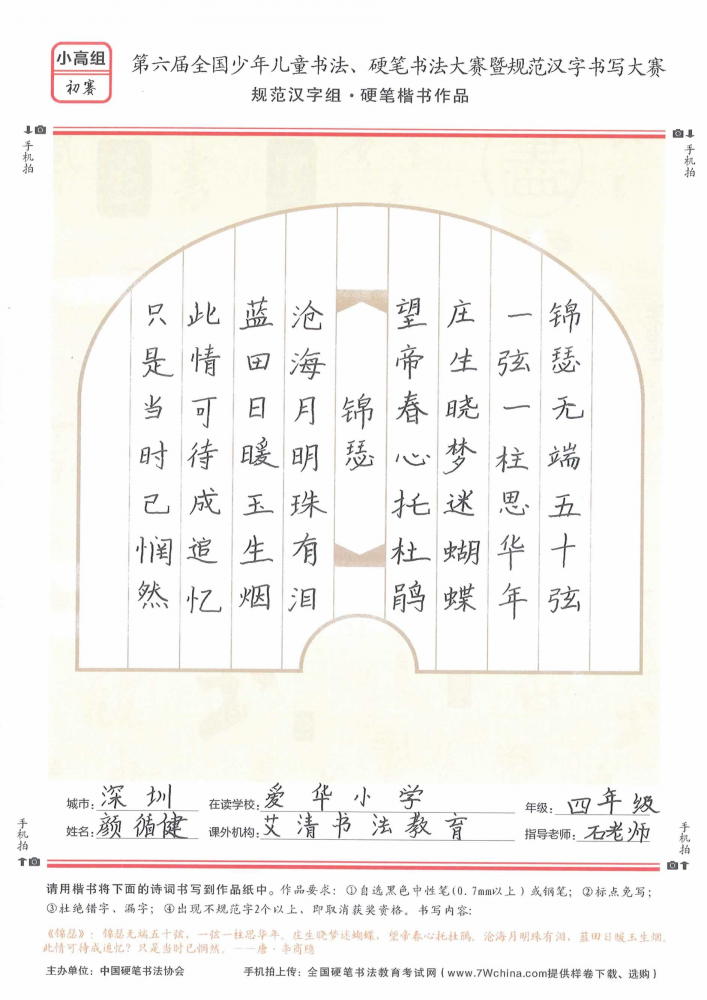 小高组
初赛
第六届全国少年儿童书法、硬笔书法大赛暨规范汉字书写大赛
规范汉字组·硬笔楷书作品
手机拍
手机拍
锦瑟无端五十弦
一弦一柱思华年
庄生晓梦迷蝴蝶
望帝春心托杜鹃
锦瑟
沧海月明珠有泪
蓝田日暖玉生烟
此情可待成追忆
只是当时已惘然
城市：深圳 在读学校：爱华小学 年级：四年级
姓名：颜循健 课外机构：艾清书法教育 指导老师：石老师
手机拍
手机拍
请用楷书将下面的诗词书写到作品纸中。作品要求：①自选黑色中性笔(0.7mm以上)或钢笔；②标点免写；
③杜绝错字、漏字；④出现不规范字2个以上，即取消获奖资格。书写内容：
《锦瑟》：锦瑟无端五十弦，一弦一柱思华年。庄生晓梦迷蝴蝶，望帝春心托杜鹃。沧海月明珠有泪，蓝田日暖玉生烟。
此情可待成追忆？只是当时已惘然。——唐·李商隐
主办单位：中国硬笔书法协会 手机拍上传：全国硬笔书法教育考试网（www.7Wchina.com提供样卷下载、选购）